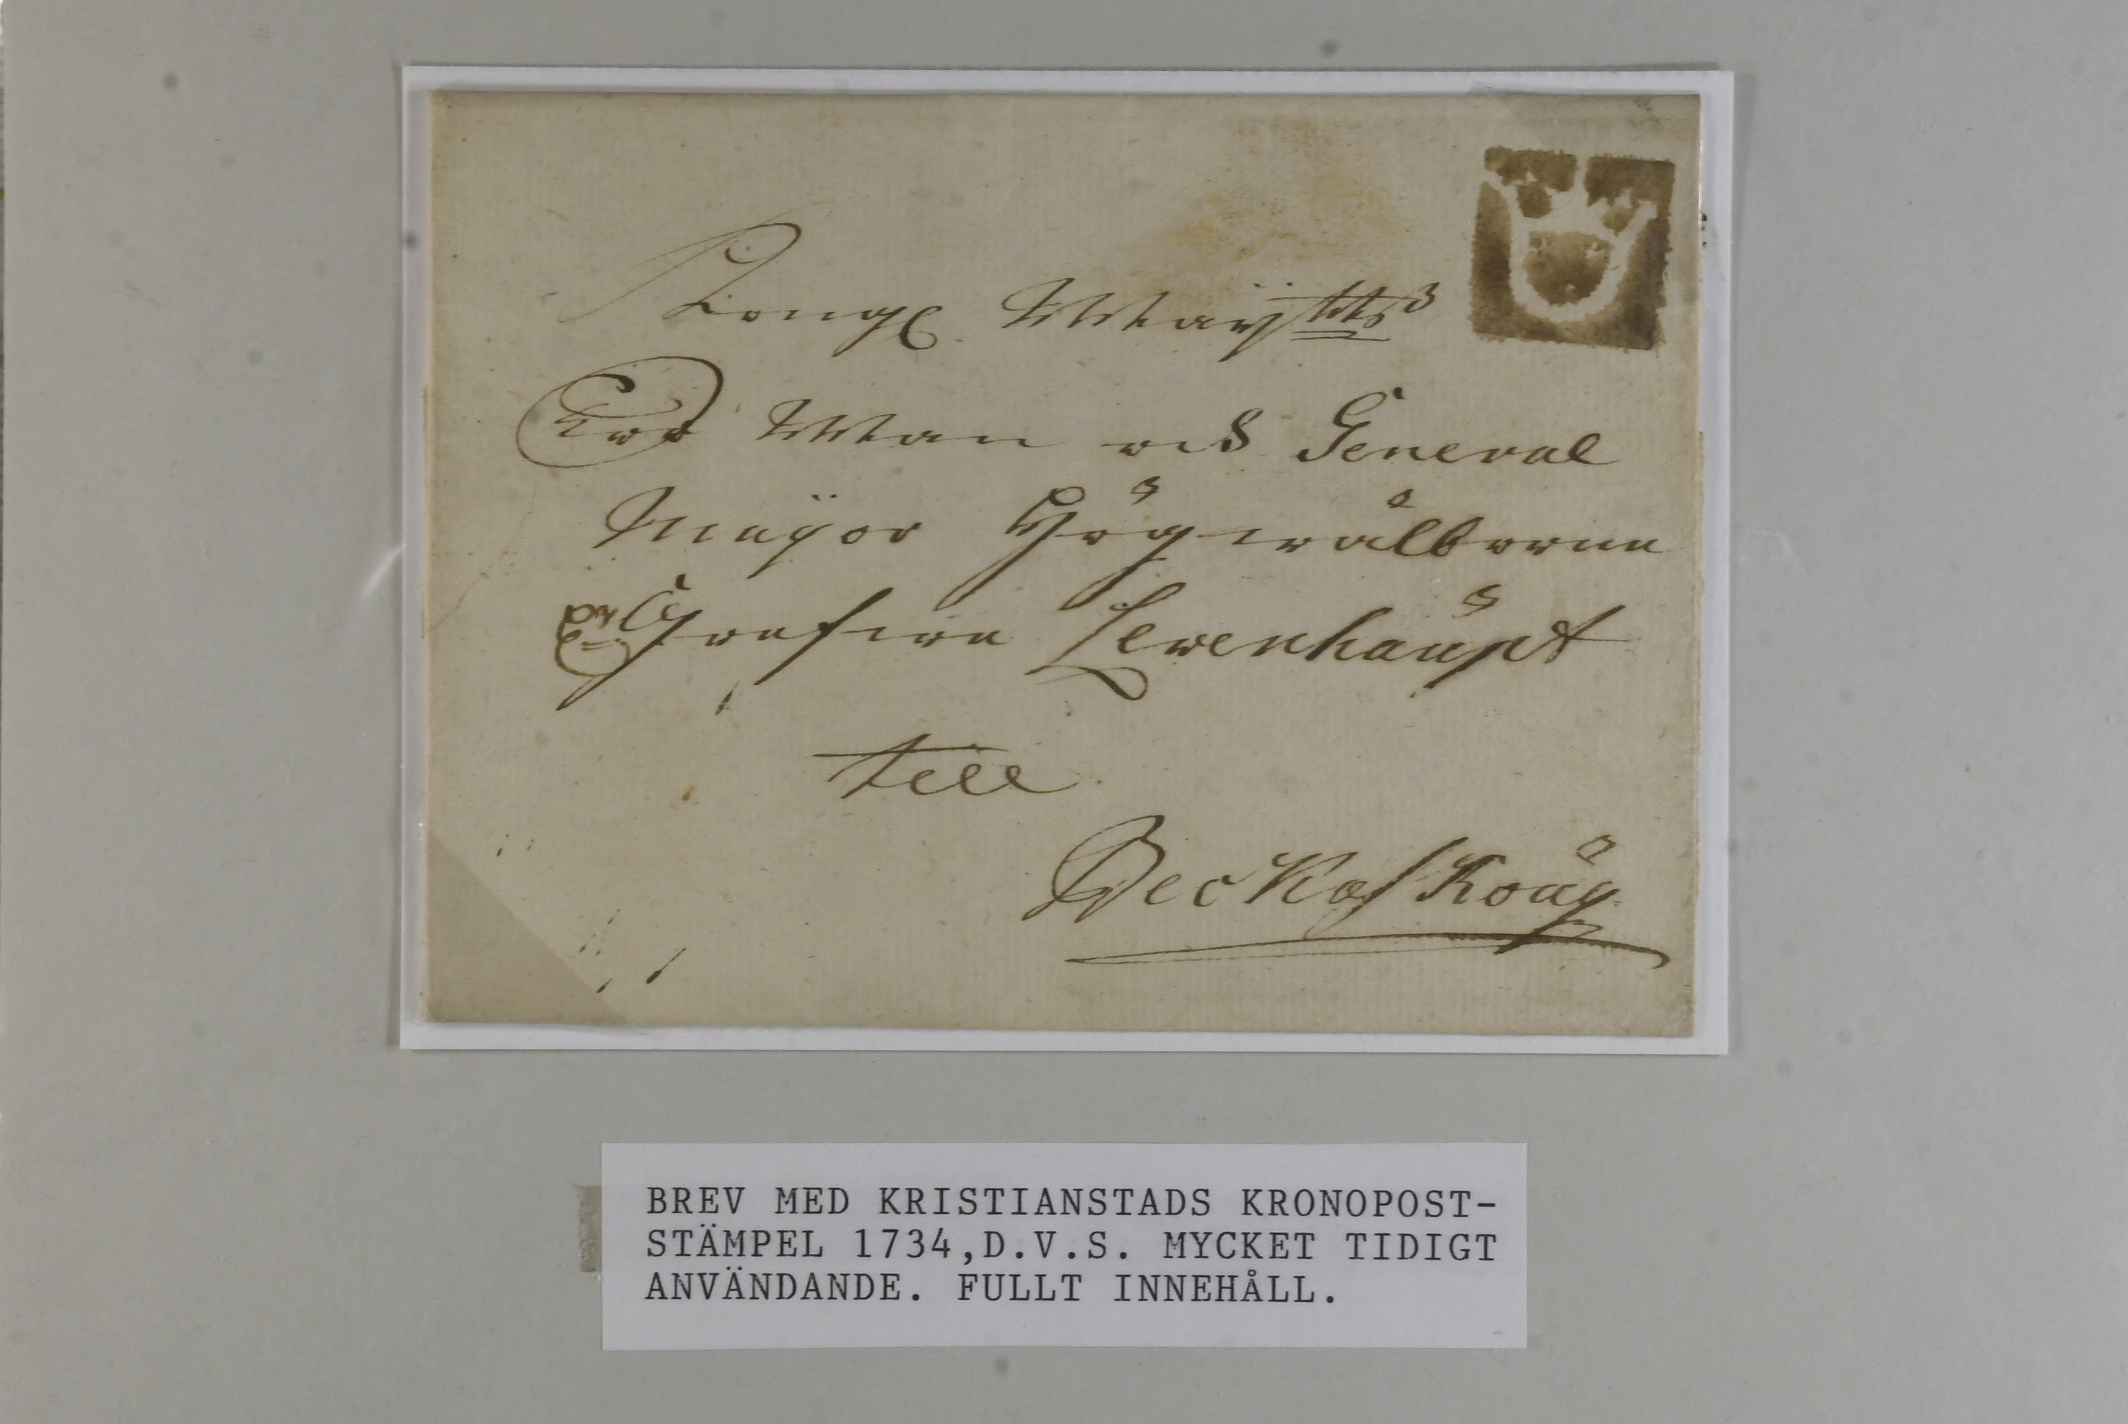 Kongl Maÿttß
Tro Man och General
Maÿor Högwälborne
H:r Grefwe Lewenhaŭpt
till
Beckaskoŭg
BREV MED KRISTIANSTADS KRONOPOST-
STÄMPEL 1734,D.V.S. MYCKET TIDIGT
ANVÄNDANDE. FULLT INNEHÅLL.